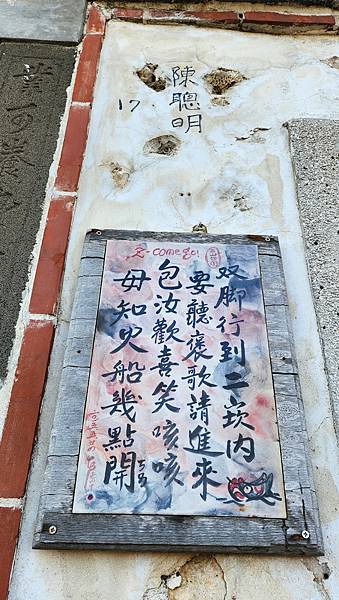 陳聰明
17.
2-come go!
双脚行到二崁內
要聽褒歌請進來
包汝歡喜笑咳咳
毋知火船幾點開